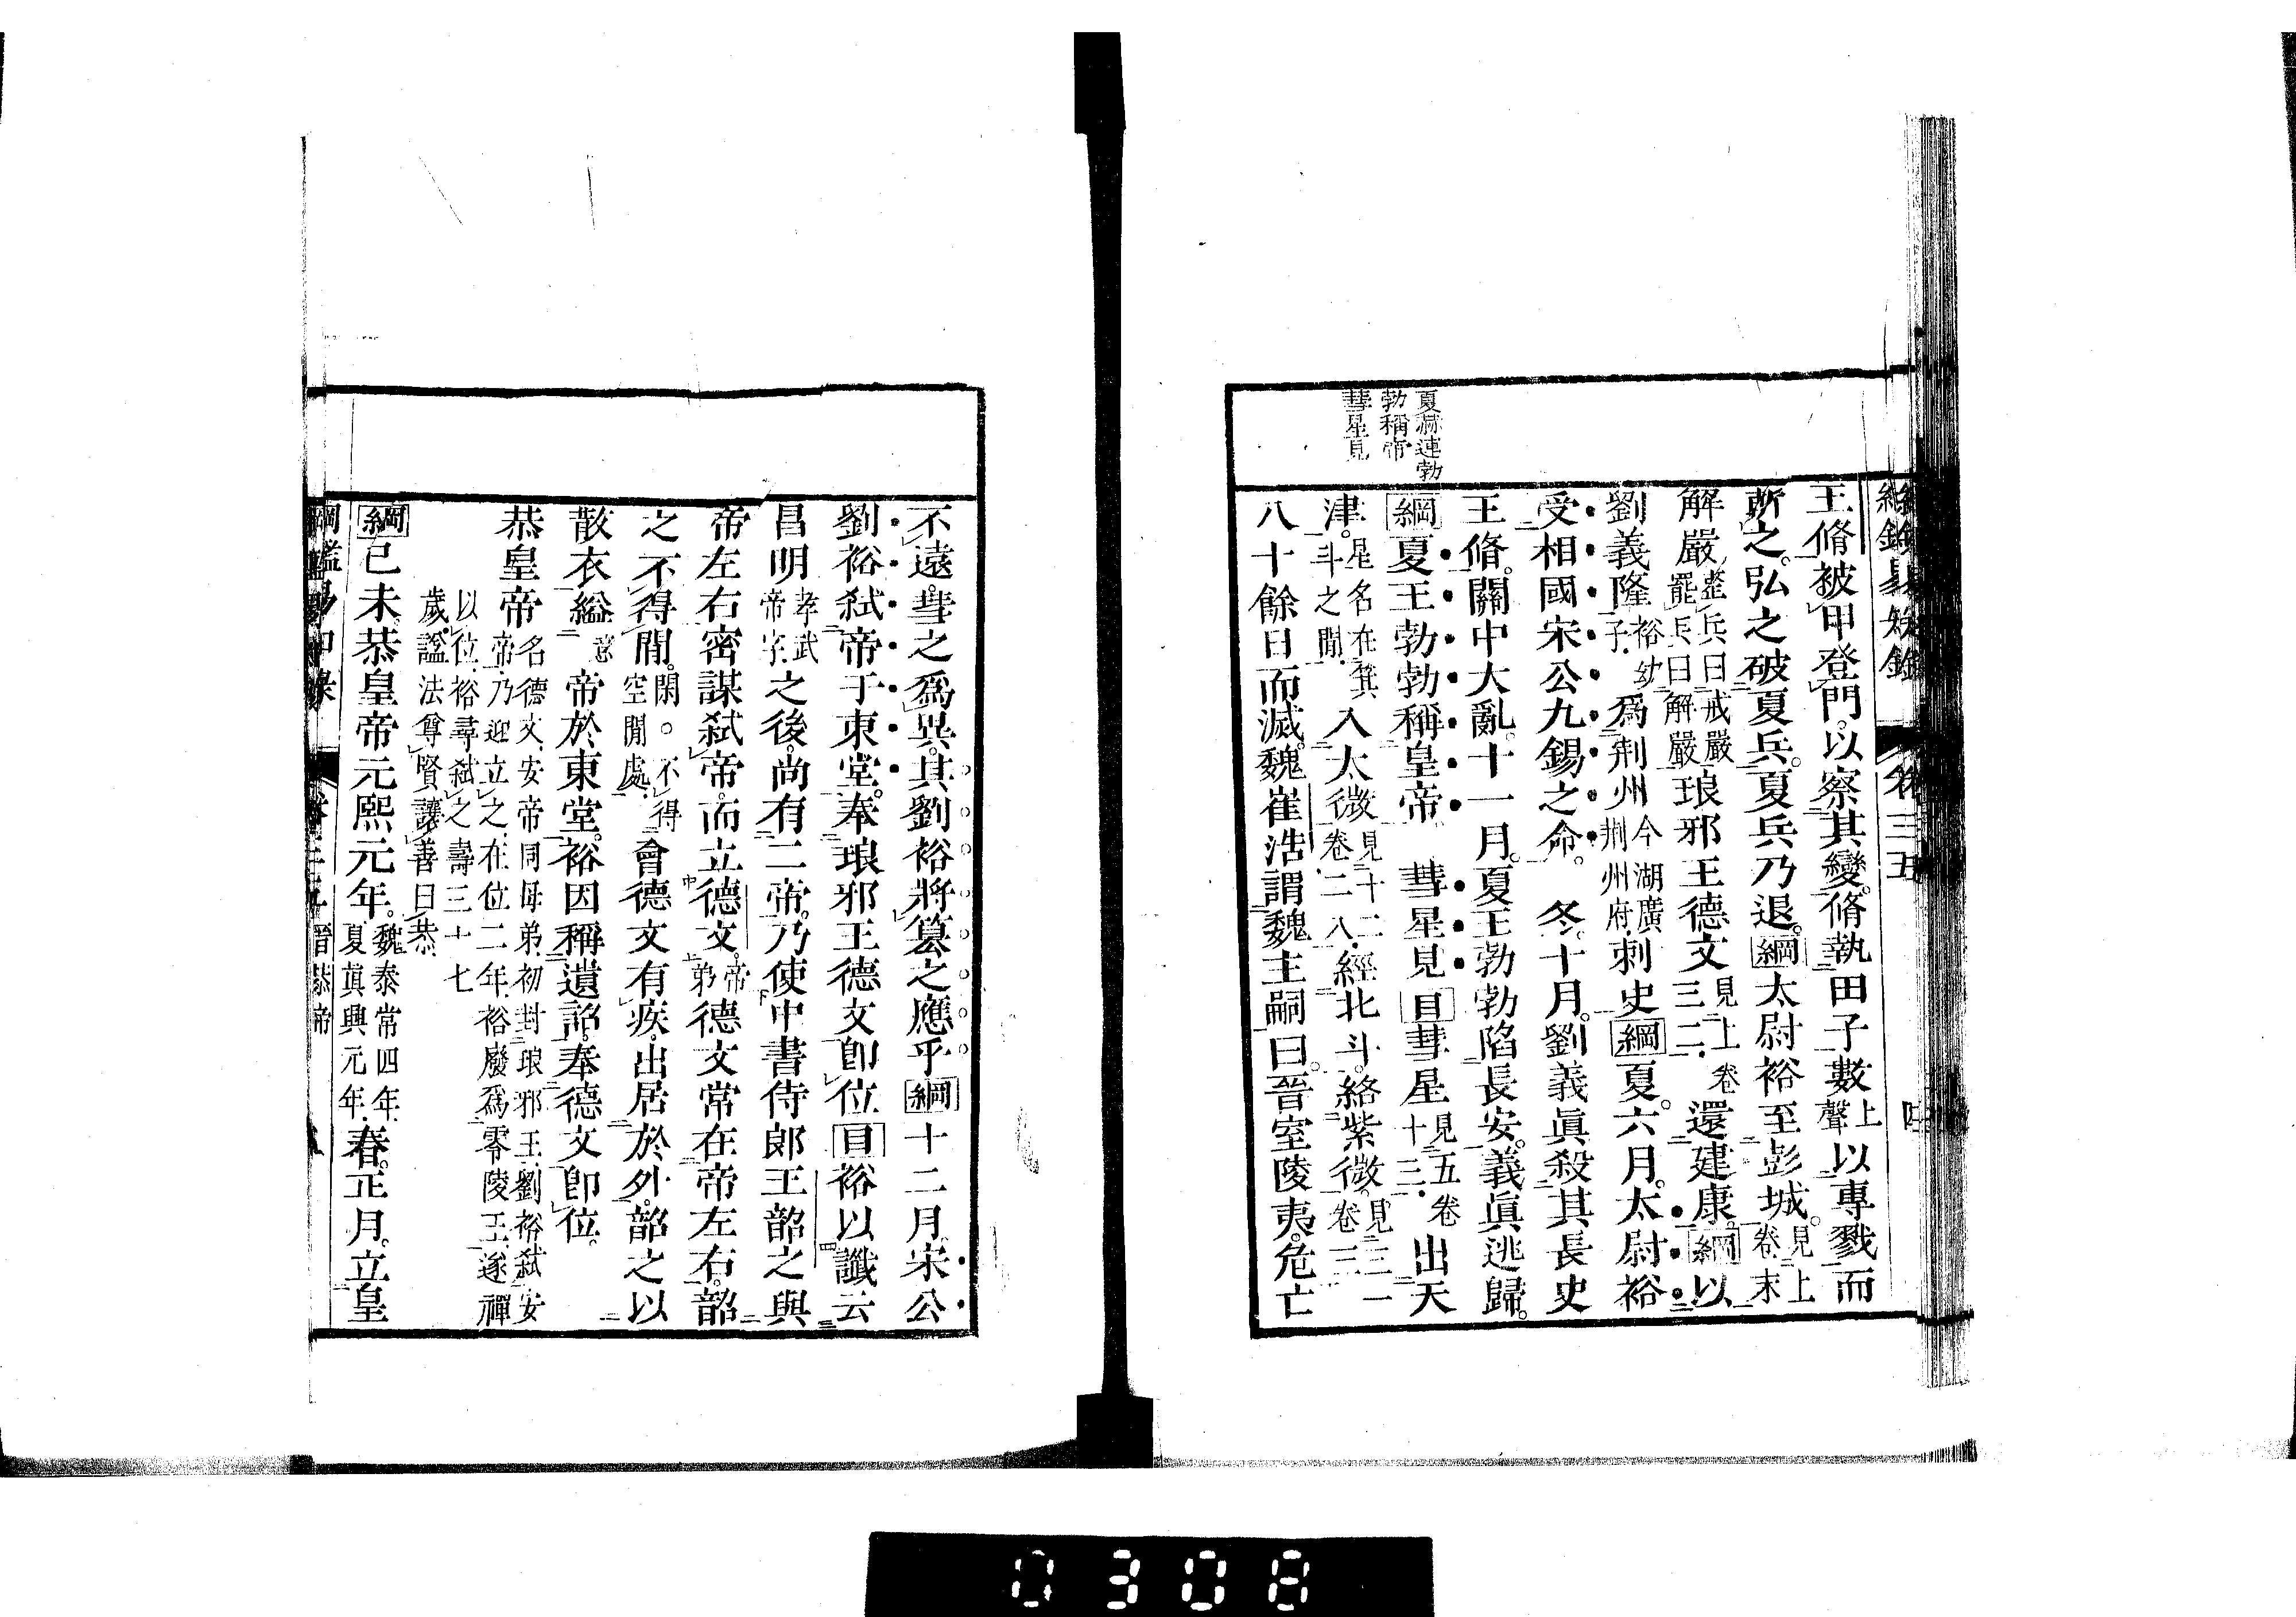 綱鑑易知錄 卷三五
夏赫連勃
勃稱帝
彗星見
王脩被甲登門。以察其變。脩執田子數上聲以專戮而
斬之。弘之破夏兵。夏兵乃退。綱太尉裕至彭城。見上卷末
解嚴整兵曰戒嚴罷兵曰解嚴琅邪王德文見上卷三二還建康。綱以
劉義隆裕幼子爲荆州今湖廣荆州府刺史綱夏。六月。太尉裕
受相國宋公九錫之命。冬。十月。劉義眞殺其長史
王脩。關中大亂。十一月。夏王勃勃陷長安。義眞逃歸。
綱夏王勃勃稱皇帝 彗星見目彗星見五卷十三出天
津。星名在箕斗之閒入太微見十二卷二八經北斗。絡紫微。見三一卷三
八十餘日而滅。魏崔浩謂魏主嗣曰。晉室陵夷。危亡
不遠。彗之爲異。其劉裕將簒之應乎綱十二月。宋公
劉裕弑帝于東堂。奉琅邪王德文卽位目裕以讖云
昌明孝武帝字之後。尚有二帝。乃使中書侍郎王韶之與
帝左右密謀弑帝。而立德文。帝弟德文常在帝左右。韶
之不得閒。閑。不得空閒處會德文有疾。出居於外。韶之以
散衣縊意帝於東堂。裕因稱遺詔。奉德文卽位。
恭皇帝名德文安帝同母弟初封琅邪王劉裕弑安
帝乃迎立之在位二年裕廢爲零陵王遂禪
以位裕尋弑之壽三十七
歲謚法尊賢讓善曰恭
綱己未恭皇帝元熙元年。魏泰常四年夏眞興元年春。正月。立皇
綱鑑易知錄 卷三五 晉恭帝
0308